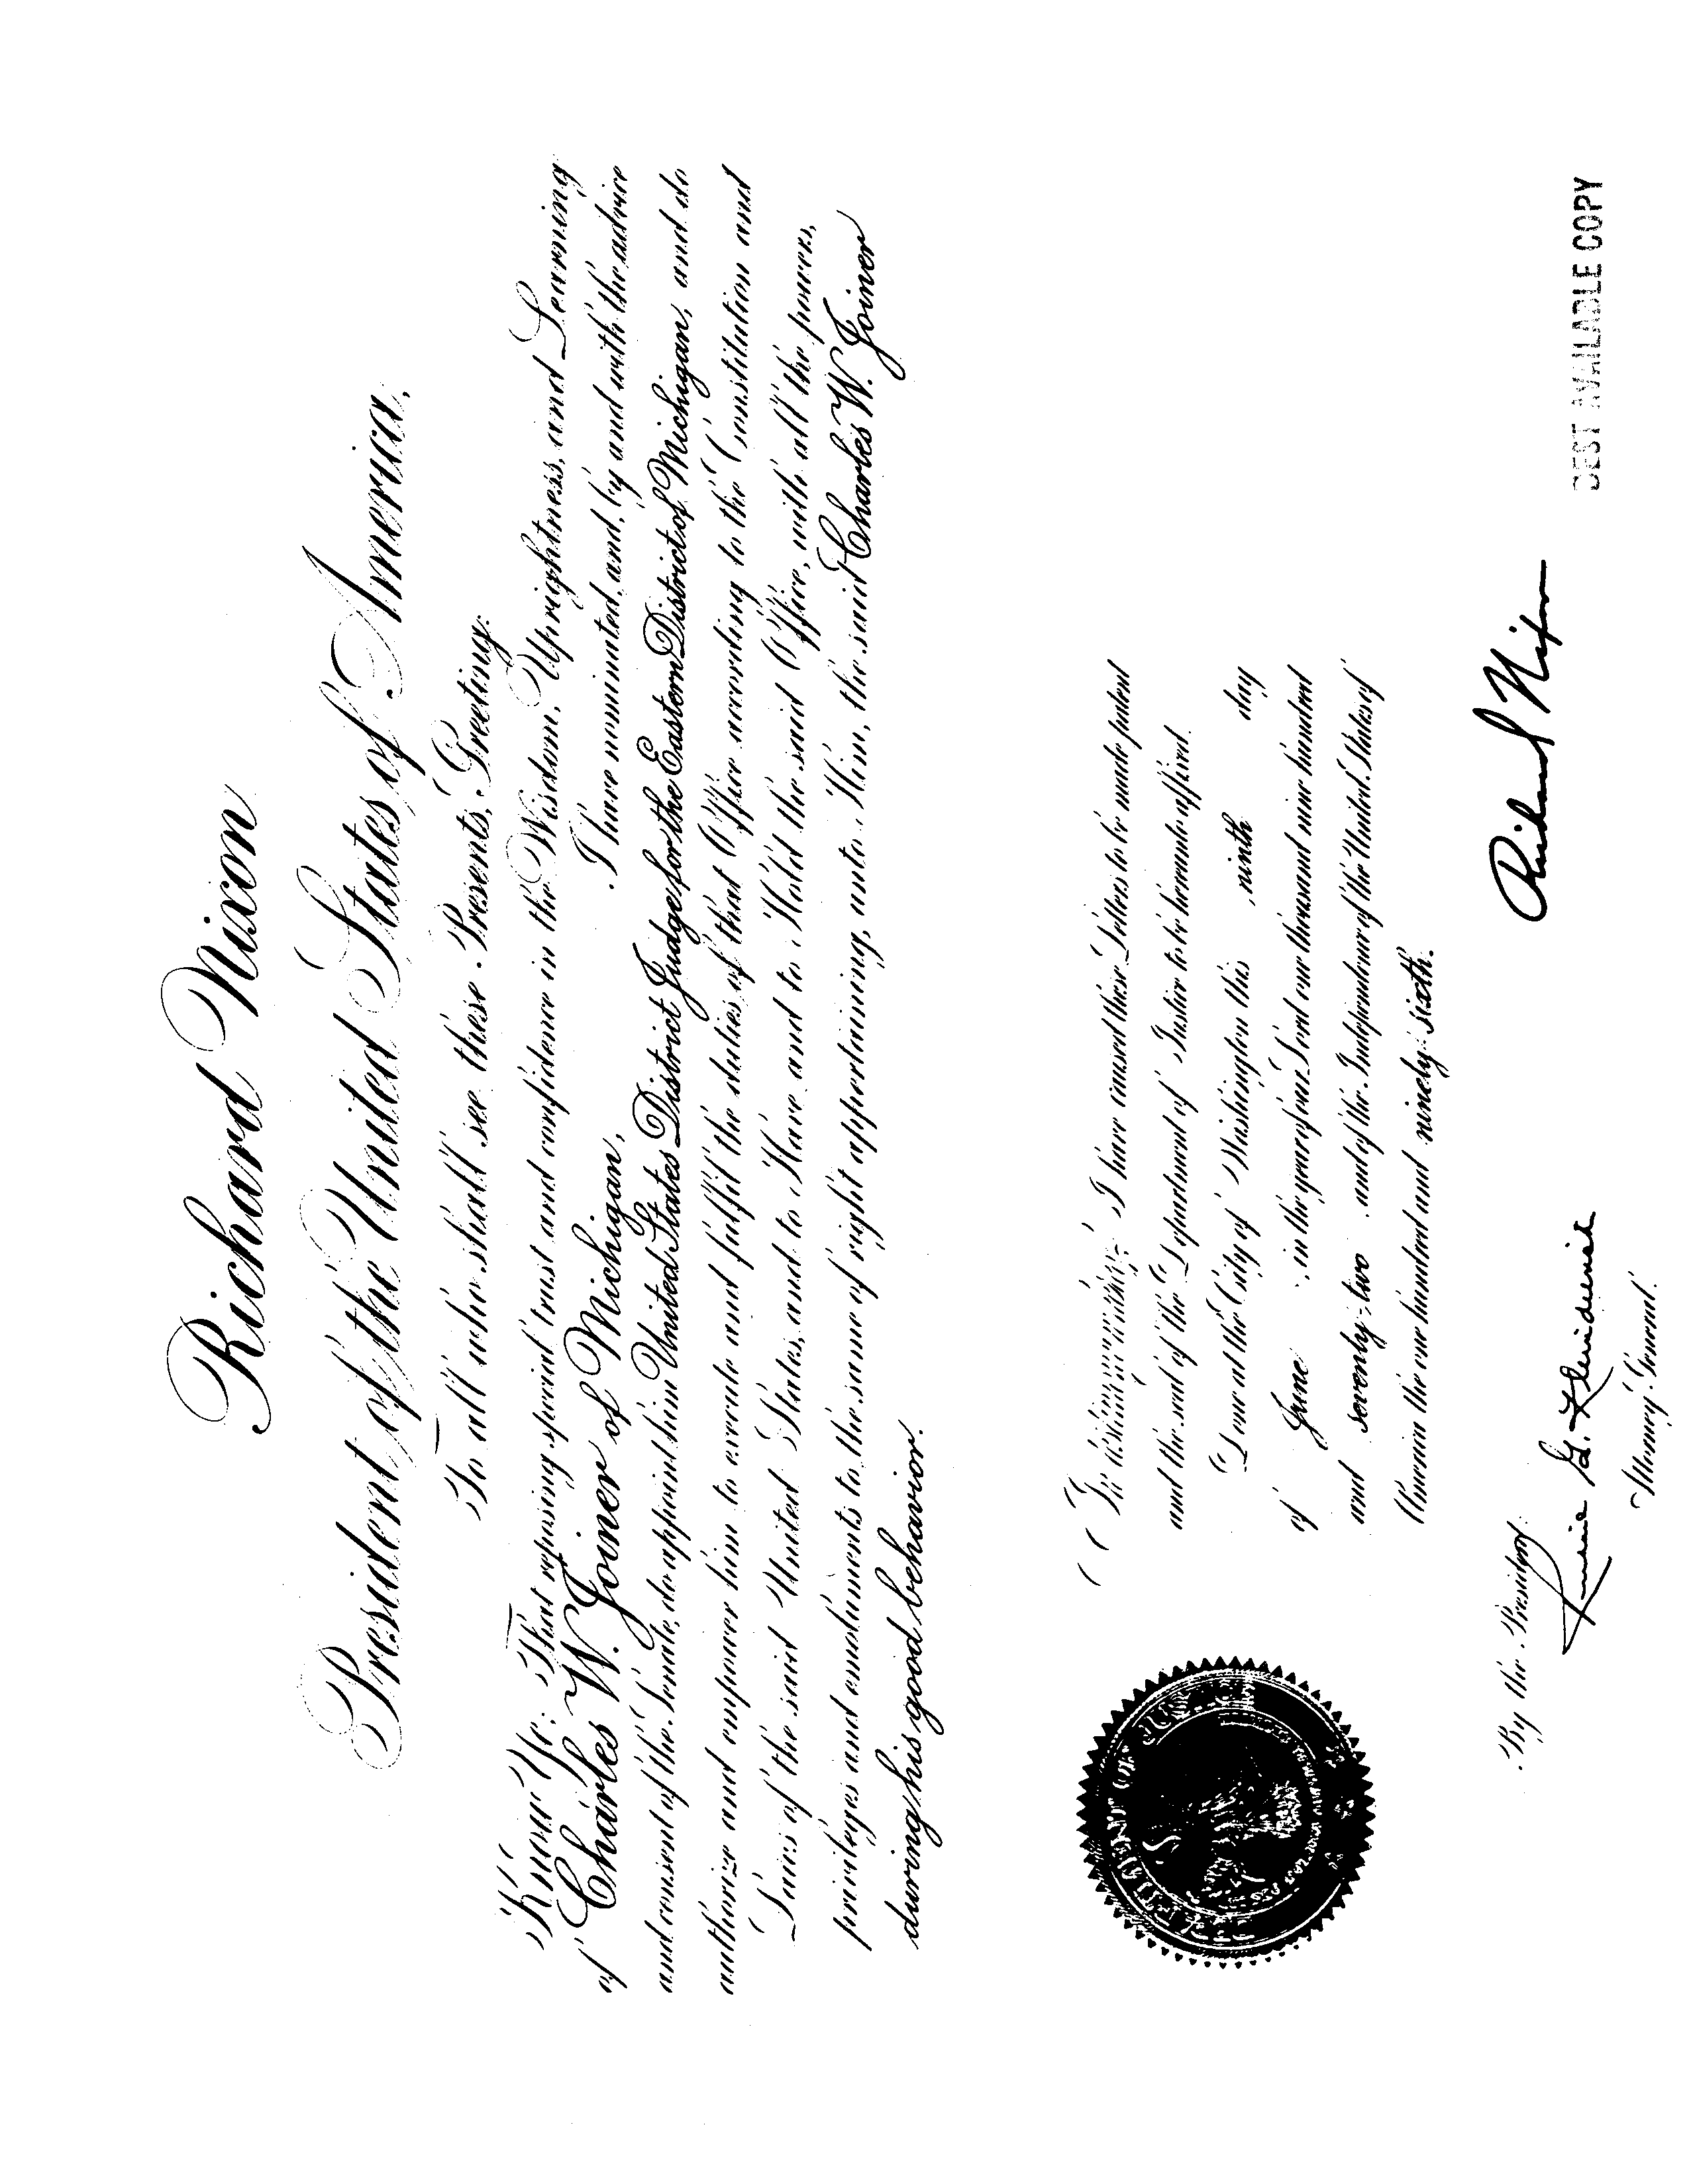 Richard Nixon
President of the United States of America,
To all who shall see these Presents, Greeting:
Know Ye: That reposing special trust and confidence in the Wisdom, Uprightness, and Learning
of Charles W. Joiner of Michigan, I have nominated, and, by and with the advice
and consent of the Senate, do appoint him United States District Judge for the Eastern District of Michigan, and do
authorize and empower him to execute and fulfil the duties of that Office according to the Constitution and
Laws of the said United States, and to Have and to Hold the said Office, with all the powers,
privileges and emoluments to the same of right appertaining, unto Him, the said Charles W. Joiner
during his good behavior.
In testimony whereof, I have caused these Letters to be made patent
and the seal of the Department of Justice to be hereunto affixed.
Done at the City of Washington this ninth day
of June, in the year of our Lord one thousand nine hundred
and seventy-two and of the Independence of the United States of
America the one hundred and ninety-sixth.
DEPARTMENT OF JUSTICE
Richard Nixon
By the President:
Richard G. Kleindienst
Attorney General.
BEST AVAILABLE COPY